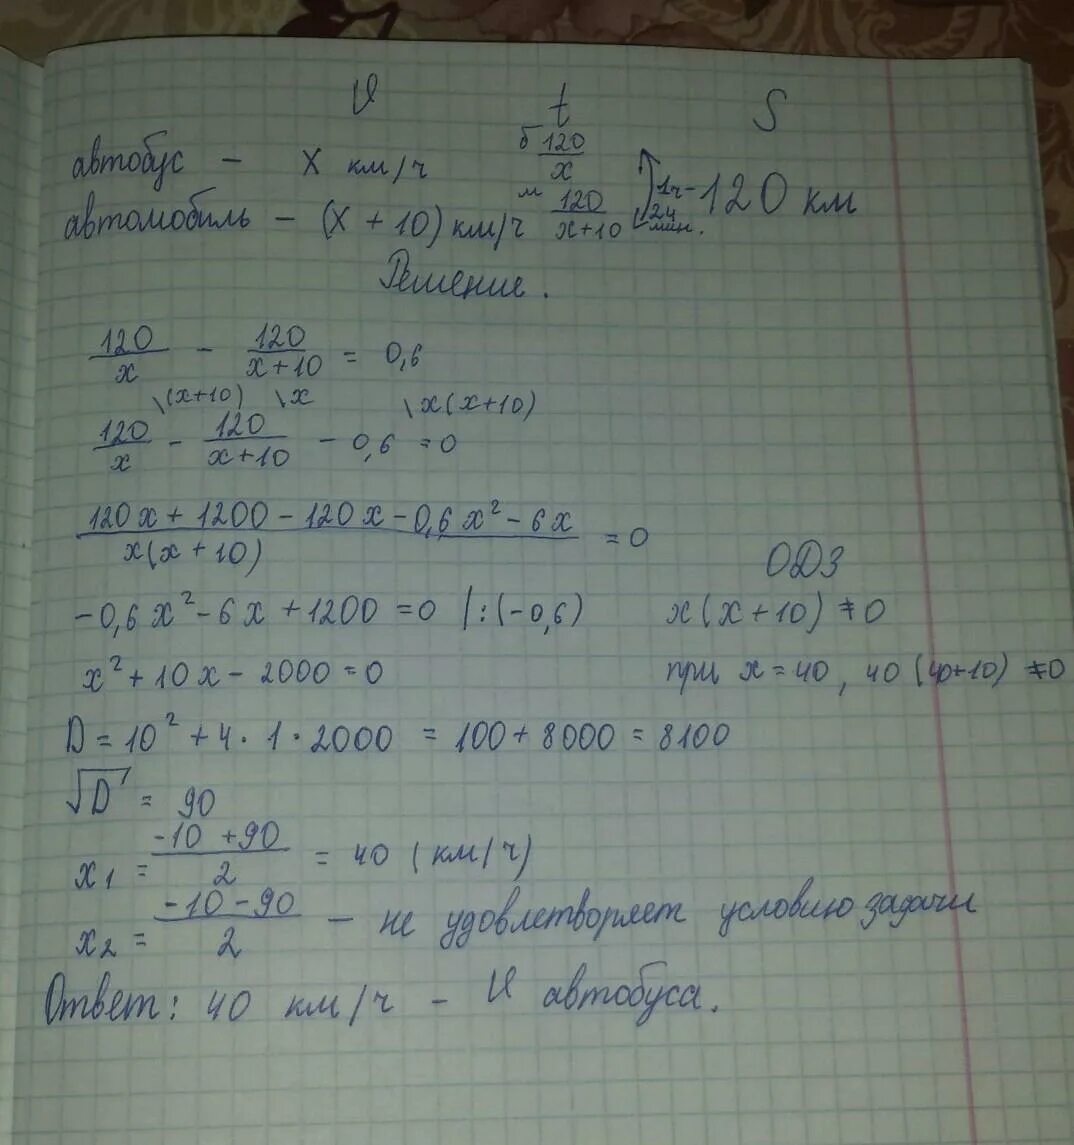 V t S
автобус – x км/ч б 120/x
автомобиль – (x + 10) км/ч м 120/x+10 1ч– 24 мин. 120 км
Решение.
120/x – 120/x+10 = 0,6
\(x+10) \x \x(x+10)
120/x – 120/x+10 – 0,6 = 0
120x + 1200 – 120x – 0,6x² – 6x / x(x + 10) = 0
ОДЗ
–0,6x² – 6x + 1200 = 0 |:(–0,6) x(x+10) ≠ 0
x² + 10x – 2000 = 0 при x = 40, 40(40+10) ≠ 0
D = 10² + 4 · 1 · 2000 = 100 + 8000 = 8100
√D = 90
x₁ = –10 + 90/2 = 40 (км/ч)
x₂ = –10 – 90/2 – не удовлетворяет условию задачи
Ответ: 40 км/ч – V автобуса.